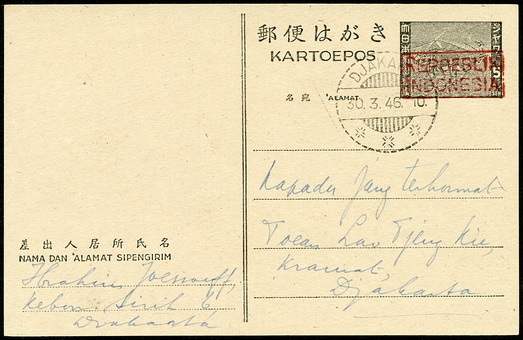 郵便はがき
KARTOEPOS
大日本
ジャワ
5
REPOEBLIK
INDONESIA
DJAKARTA
30. 3. 46. 10.
名宛 'ALAMAT
Kapada Jang terhormat
Toean Lao Tjeng Kie,
Kramat,
Djakarta
差出人居所氏名
NAMA DAN 'ALAMAT SIPENGIRIM
Ibrahim Joesoeff,
Kebon Sirih 6,
Djakarta